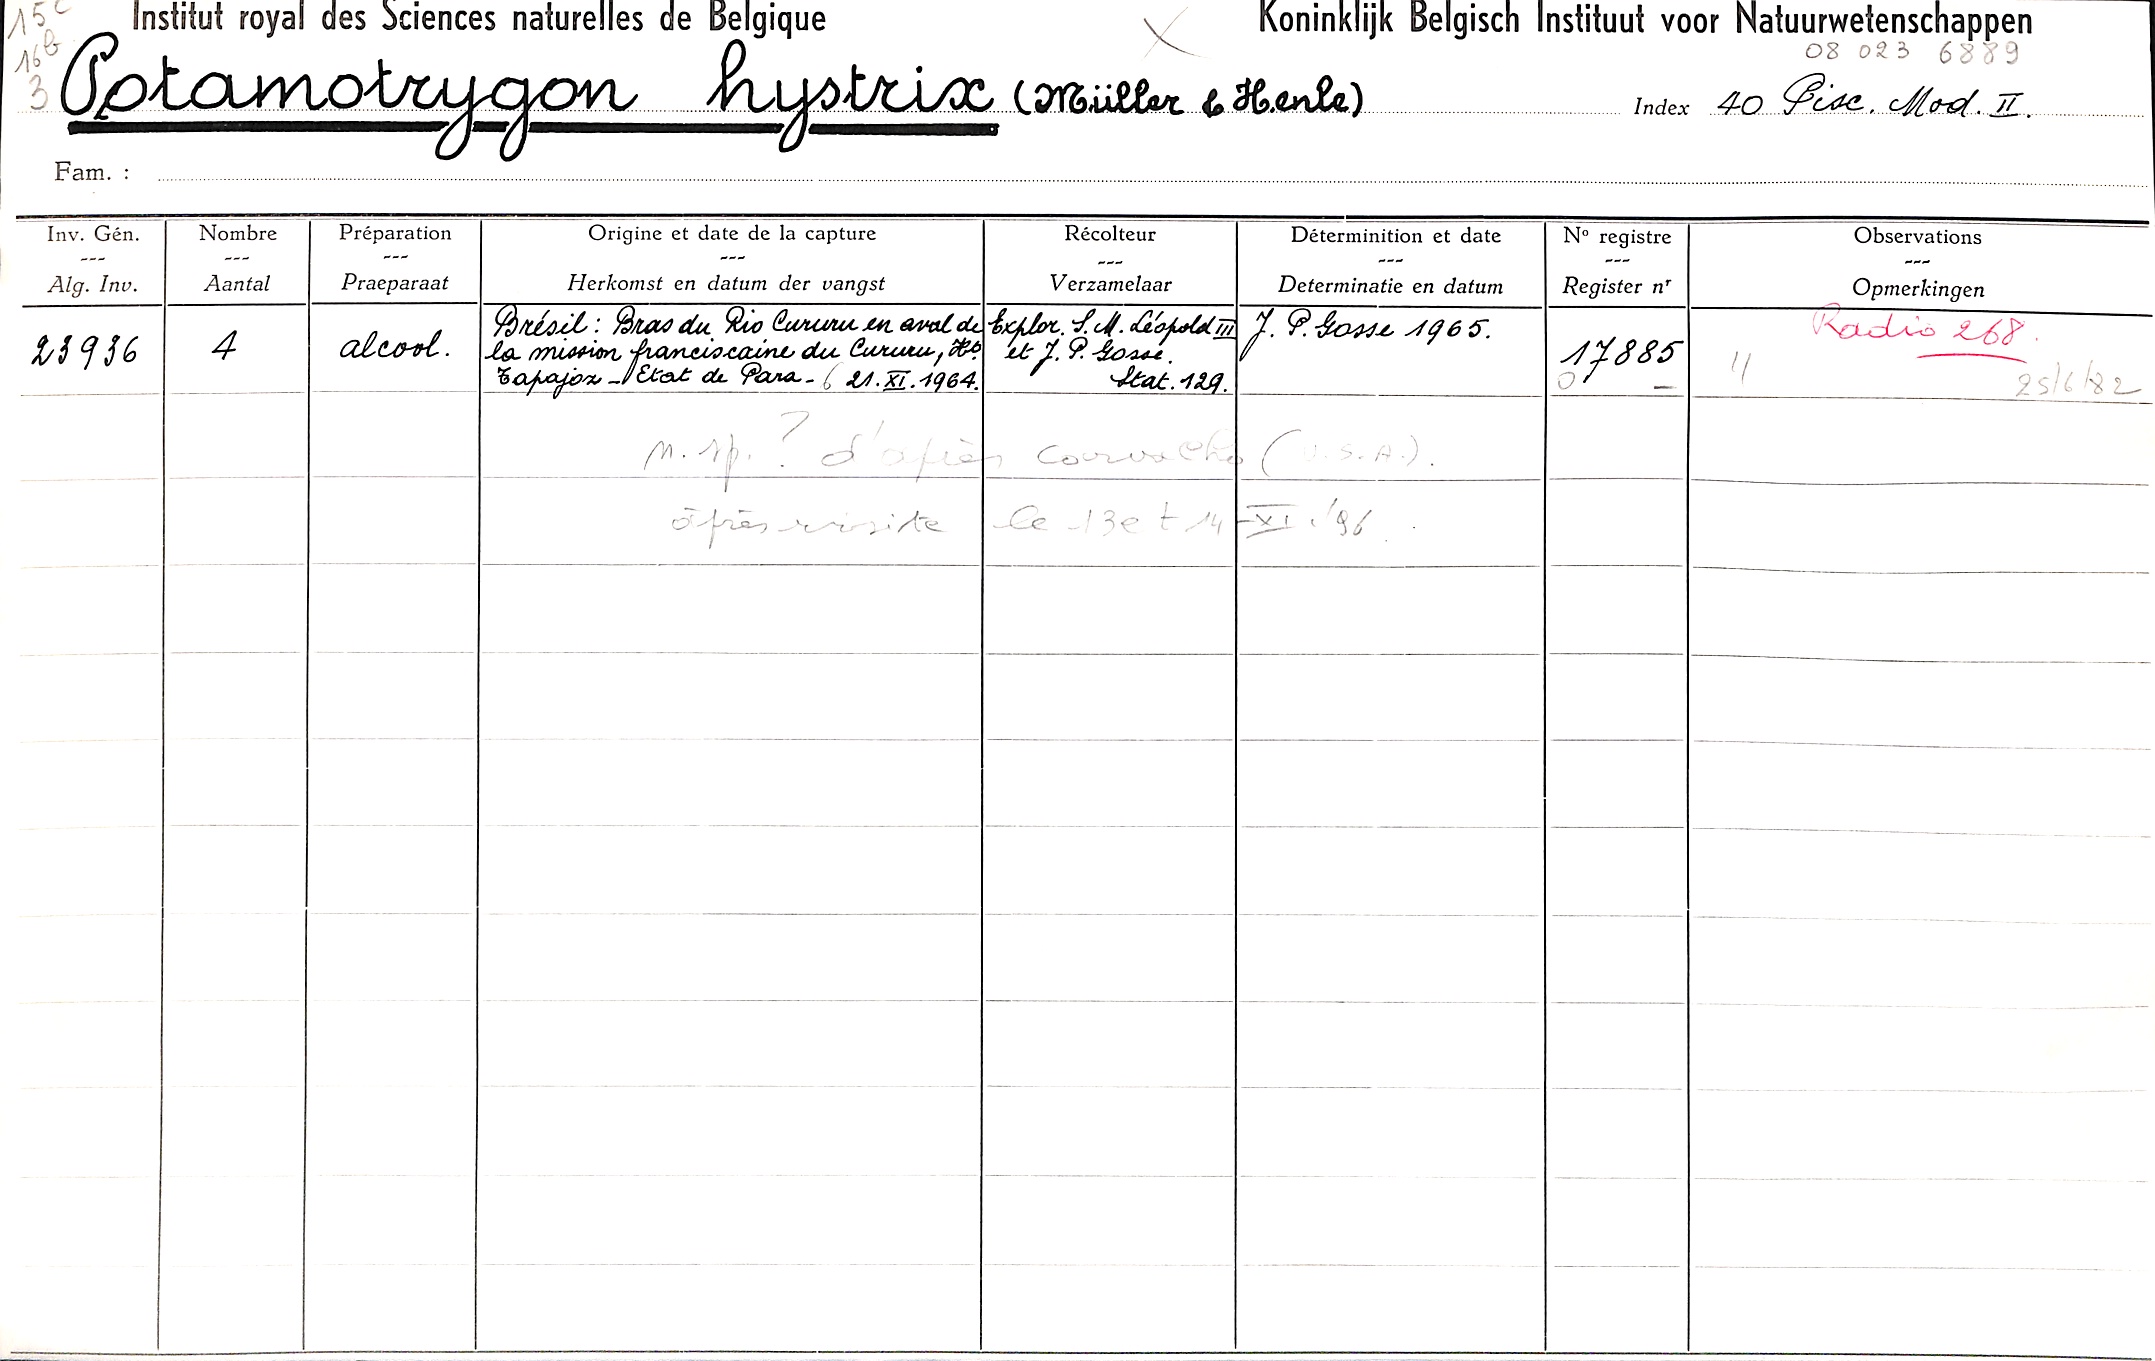 15c
16b
3
Institut royal des Sciences naturelles de Belgique
Koninklijk Belgisch Instituut voor Natuurwetenschappen
08 023 6889
Potamotrygon hystrix (Müller & Henle)
Index 40 Pisc. Mod. II.
Fam. :
Inv. Gén. --- Alg. Inv.
Nombre --- Aantal
Préparation --- Praeparaat
Origine et date de la capture --- Herkomst en datum der vangst
Récolteur --- Verzamelaar
Déterminition et date --- Determinatie en datum
No registre --- Register nr
Observations --- Opmerkingen
23936
4
alcool.
Brésil : Bras du Rio Cururu en aval de
la mission franciscaine du Cururu, Ht
Tapajoz - Etat de Para - 21.XI.1964.
Explor. S. M. Léopold III
et J. P. Gosse.
Stat. 129.
J. P. Gosse 1965.
17885
0 –
Radio 268.
25/6/82
n. sp. ? d'après Carvalho (U.S.A.).
après visite le 13 et 14-XI.'96.